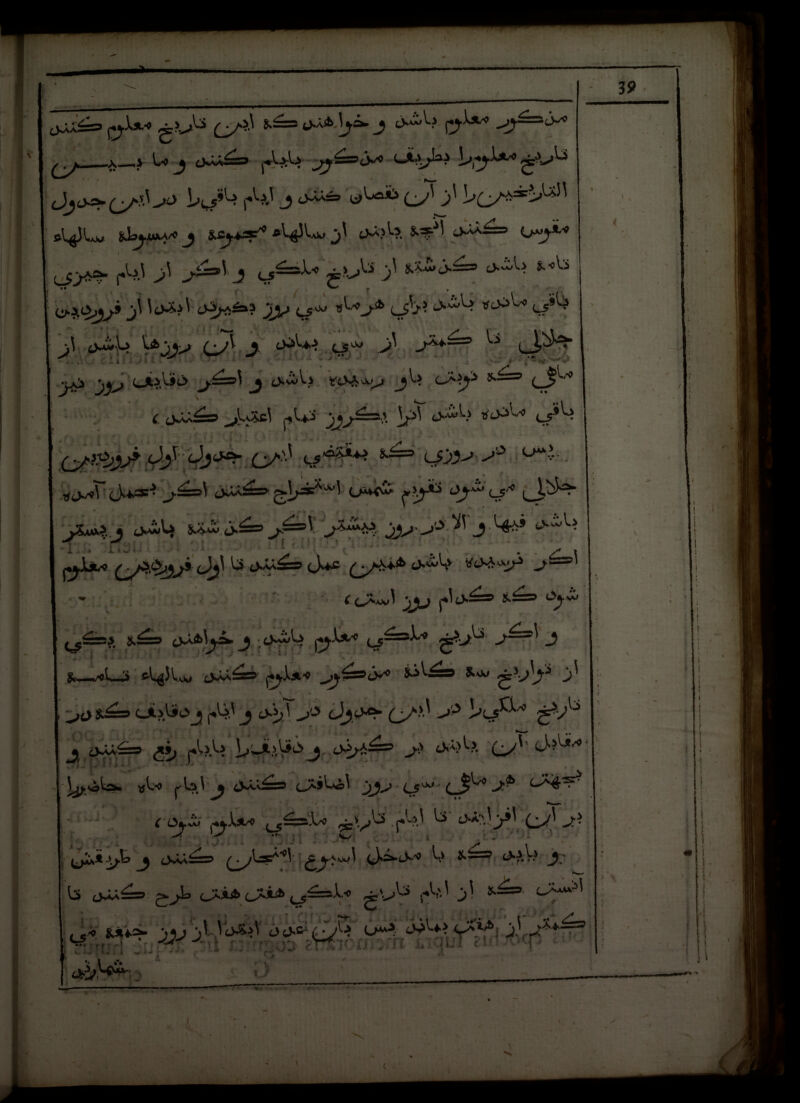 39
مذکور معلوم باشد و خواهند که ازین تاریخ معلوم کنند
تاریخ معلومرا بطریق مذکور بایام کنند و ما بین
التاریخین را از آن نقصان کنند و ایام باقی را در این جدول
مقوس کنند آنچه بیاید از سالهاء مجموعه و مبسوطه سالهاء
تامه باشد گذشته از تاریخ ملکی و اگر از ایام چیزی
باقی مانده باشد برای هر ماه سی روز بگیرند ابتدا از فروردین
جلالی تا کمتر از سی بماند و آن روزها باشد از
ماهی که نوبت باو رسیده باشد و اگر دقایق روز نیز
باقی مانده باشد آنرا یکروز تمام اعتبار کنند
پس در روزی که بمقتضی این جدول اول فروردین
جلالی می شود تقویم شمس استخراج کنند اگر بحمل آمده
باشد فبها و الا در روز پیشتر اگر گذشته باشد و پستر
اگر نرسیده باشد همین عمل کنند تا اول فروردین معلوم
شود که کدام روز است
و اگر تاریخ ملکی معلوم باشد و خواهند که یکی
از تواریخ سه گانه مذکور معلوم کنند سالهاء تامه
تاریخ ملکی را در این جدول در آرند و ایام و دقایق که در
مقابل آن یابند بر گیرند و دقایق را بایام رفع کنند و
بجهت هر ماهی سی روز اضافت کنند و ایام ماه حاضر را
بر آن افزایند تا ایام تاریخ ملکی معلوم شود
و باید که با مدخل اسبوع امتحان کنند و طریقش
آنست که از ایام تاریخ ملکی هفت هفت طرح کنند تا
کمتر از هفت بماند پس بآن عدد ابتدا از روز جمعه می
شمارند